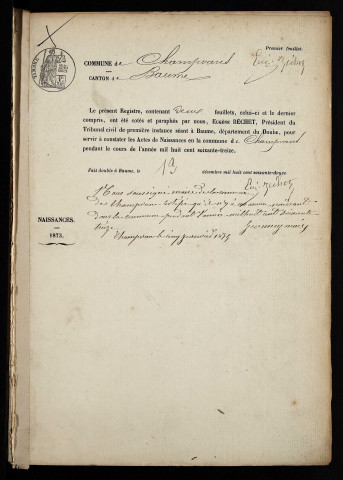 Premier feuillet.
COMMUNE de Champvans
CANTON de Baume
Le présent Registre, contenant deux feuillets, celui-ci et le dernier
compris, ont été cotés et paraphés par nous, EUGÈNE BÉCHET, Président du
Tribunal civil de première instance séant à Baume, département du Doubs, pour
servir à constater les Actes de Naissances en la commune de Champvans
pendant le cours de l'année mil huit cent soixante-treize.
Fait double à Baume, le 13 décembre mil huit cent soixante-douze
Nous soussigné maire de la commune
de Champvans qu'il n'y a
dans la commune pendant l'année mil huit cent soixante
treize
NAISSANCES.
1873.
Champvans le cinq